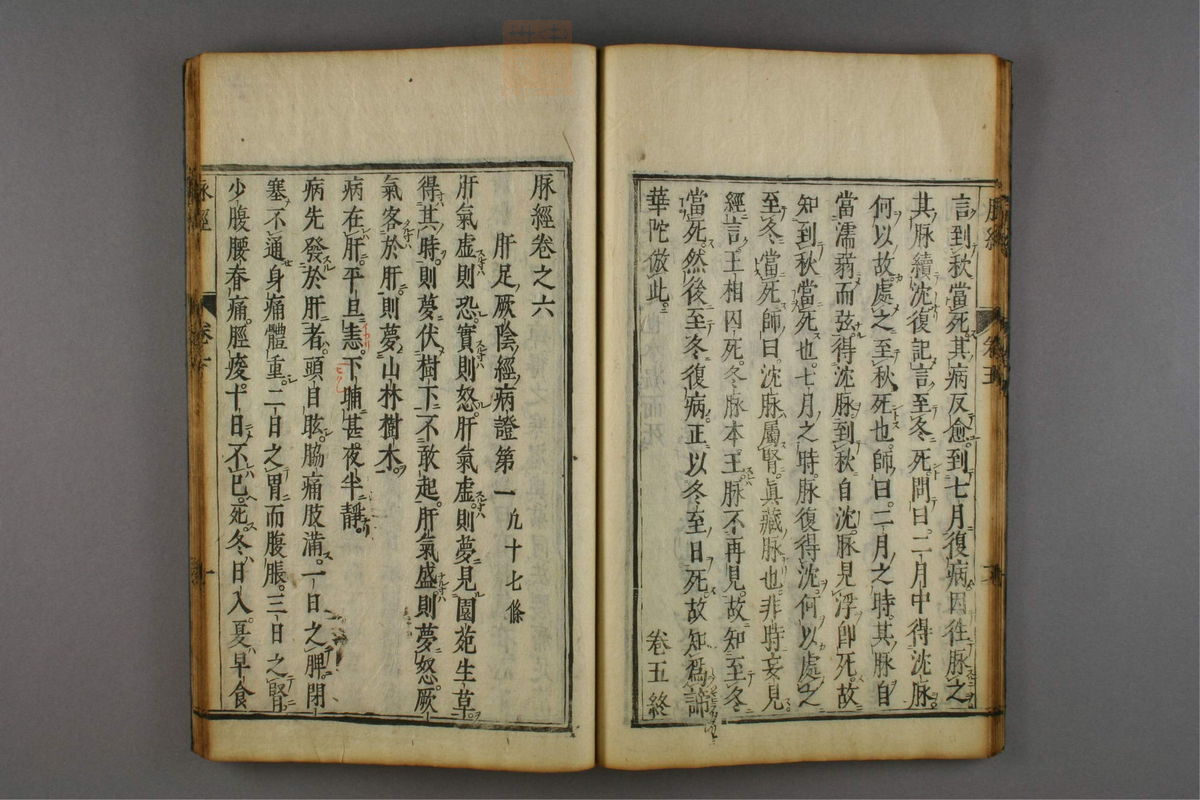 言到秋當死其病反愈到七月復病因往脉之
其脉續沈復記言至冬死問曰二月中得沈脉
何以故處之至秋死也師曰二月之時其脉自
當濡弱而弦得沈脉到秋自沈脉見浮卽死故
知到秋當死也七月之時脉復得沈何以處之
至冬當死師曰沈脉屬腎眞藏脉也非時妄見
經言王相囚死冬脉本王脉不再見故知至冬
當死然後至冬復病正以冬至日死故知爲諦
華陀倣此
卷五終
脉經卷之六
肝足厥陰經病證第一 凢十七條
肝氣虛則恐實則怒肝氣虛則夢見園苑生草
得其時則夢伏樹下不敢起肝氣盛則夢怒厥
氣客於肝則夢山林樹木
病在肝平旦恚下晡甚夜半靜
病先發於肝者頭目眩脇痛肢滿一日之脾閉
塞不通身痛體重二日之胃而腹脹三日之腎
少腹腰脊痛脛痠十日不已死冬日入夏早食
脉經